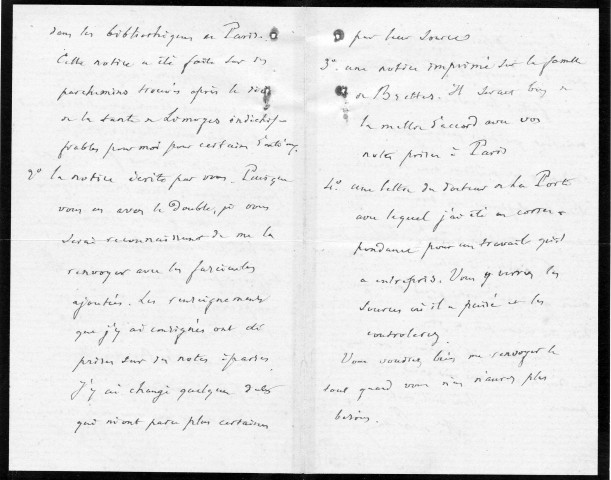 dans les bibliothèques de Paris.
Cette notice a été faite sur des
parchemins trouvés après le décès
de la tante de Limoges indéchif-
frables pour moi pour certains
2° la notice écrite par vous. Puisque
vous en avez le double, je vous
serai reconnaissant de me la
renvoyer avec les fascicules
ajoutés. Les renseignements
que j'y ai consignés ont été
prises sur des notes éparses
J'y ai changé quelques dates
qui m'ont paru plus certaines
par leur source
3° une notice imprimé sur la famille
de Brettes. Il serait bon de
la mettre d'accord avec vos
notes prises à Paris
4° une lettre du docteur de La Porte
avec lequel j'ai été en corres-
pondance pour un travail qu'il
a entrepris. Vous y verrez les
sources où il a puisé et les
controlerez
Vous voudrez bien me renvoyer le
tout quand vous n'en n'aurez plus
besoin.